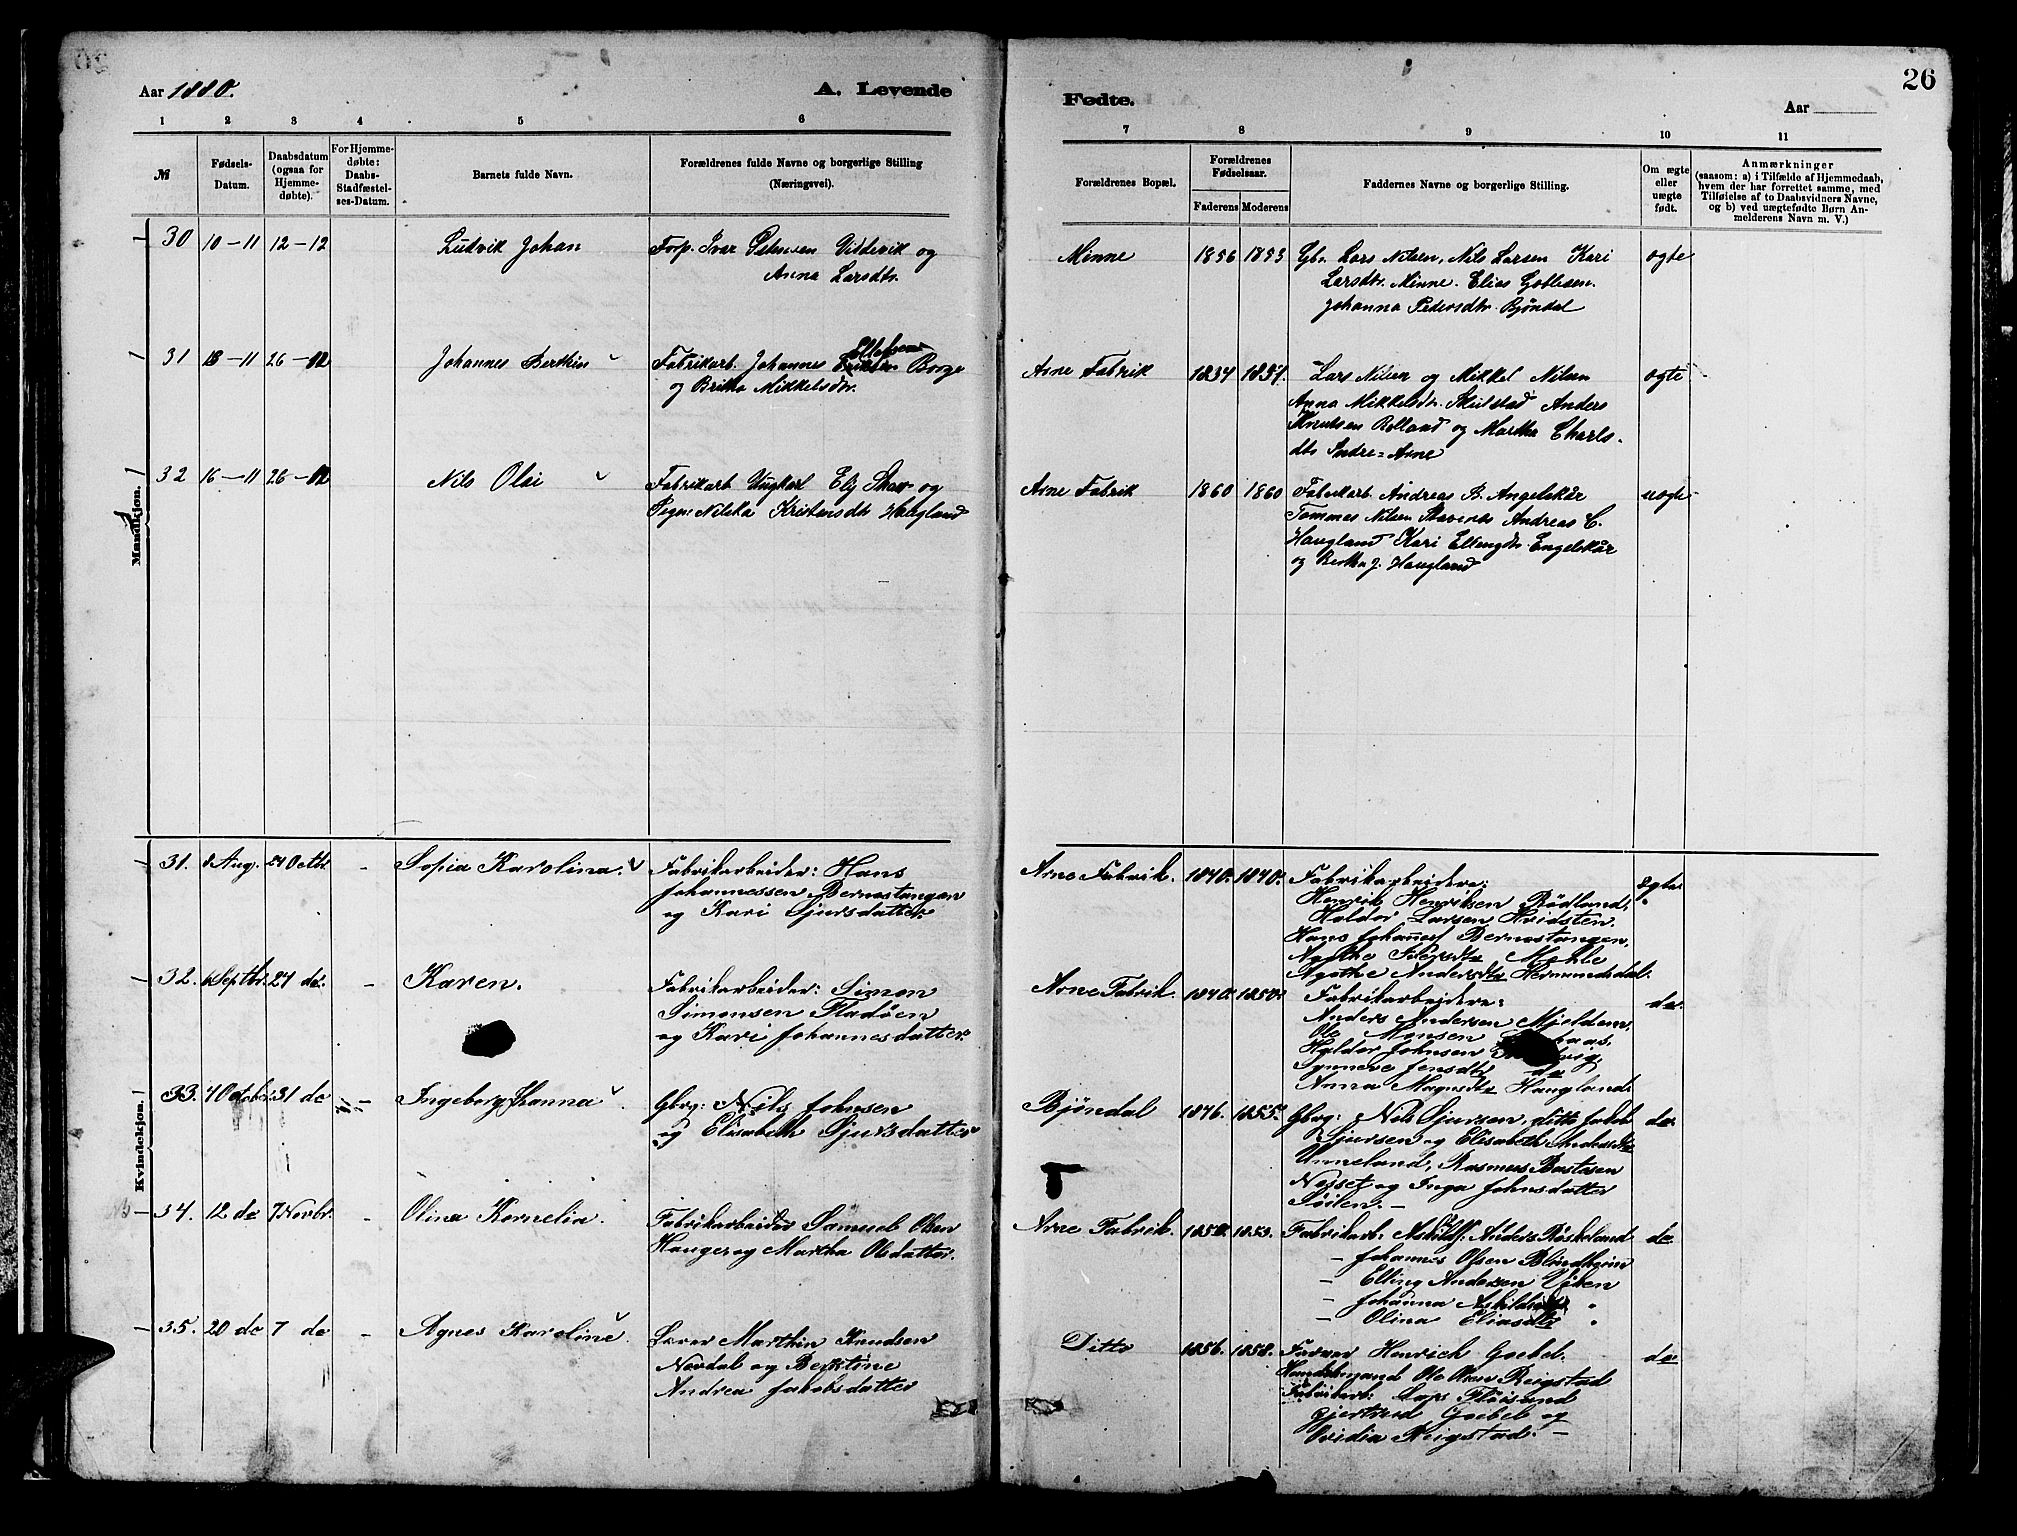 26
Aar 1880.
A. Levende
Fødte.
Aar
1 2 3 4 5 6
7 8 9 10 11
№
Fødsels-
Datum.
Daabsdatum
(ogsaa for
Hjemme-
døbte).
For Hjemme-
døbte:
Daabs-
Stadfæstel-
ses-Datum.
Barnets fulde Navn.
Forældrenes fulde Navne og borgerlige Stilling
(Næringsvei).
Forældrenes Bopæl.
Forældrenes
Fødselsaar.
Faderens Moderens
Faddernes Navne og borgerlige Stilling.
Om ægte
eller
uægte
født.
Anmærkninger
(saasom: a) i Tilfælde af Hjemmedaab,
hvem der har forrettet samme, med
Tilføielse af to Daabsvidners Navne,
og b) ved uægtefødte Børn An-
melderens Navn m. V.)
Mandkjøn.
30 10-11 12-12
Ludvik Johan
Forp. Ivar Petersen Vildevik og
Anna Larsdtr.
Minne
1856 1853
Gbr. Lars Nilsen, Nils Larsen Kari
Larsdtr. Minne. Elias Gotlisen.
Johanna Pedersdtr. Bjøndal
ægte
31 18-11 26-12
Johannes Berthin
Fabrikarb. Johannes Ellefsen Borge
og Brita Mikkelsdtr.
Arne Fabrik
1834 1837.
Lars Nilsen og Mikkel Nilsen
Anna Mikkelsdtr. Skulstad Anders
Knutsen Rolland og Martha Charls-
dtr Indre-Arne
ægte
32 16-11 26-12
Nils Olai
Fabrikarb Ungkarl Elj Skar og
Pigen Nilska Kristensdtr Haugland
Arne Fabrik
1860 1860
Fabrikarb. Andreas B. Angelskår
Tommes Nilsen Stavenes Andreas C.
Haugland Kari Ellengdtr. Engelskår
og Bertha J. Haugland
uægte
Kvindekjøn.
31. 8 Aug. 24 Octbr. -
Sofia Karolina.
Fabrikarbeider: Hans
Johannessen Bernestangen
og Kari Sjursdatter
Arne Fabrik.
1840. 1840.
Fabrikarbeidere:
Henrik Henriksen Rødland,
Haldor Larsen Hvidsten.
Hans Johannes Bernestangen,
Agathe Mehle
Agathe Andersdtr Hermundsdal.
Egte.
32. 6 Septbr. 24 do. -
Karen.
Fabrikarbeider: Simon
Simonsen Fladøen
og Kari Johannesdatter.
Arne Fabrik.
1840. 1850.
Fabrikarbeidere:
Anders Andersen Mjeldem,
Ole Monsen
Haldor Johnsen
Synneve Jensdtr do
Anna Magnsdtr Haugland.
do.
33. 4 October. 31 do -
Ingeborg Hanna.
Gbrg: Nils Johnsen
og Elisabeth Sjursdatter
Bjøndal
1846. 1855.
Gbrg: Nils Sjursen, ditto Jakob
Sjursen og Elisabeth Andersdtr
Unneland, Rasmus Bastesen
Nesset og Inga Johnsdatter
Søilen. -
do.
34. 12 do 7 Novbr. -
Olina Kornelia.
Fabrikarbeider Samuel Olsen
Hauger og Martha Olsdatter.
Arne Fabrik.
1853.
Fabrikarb: Askild Anders. Røskeland
- Johannes Olsen Blindheim
- Elling Andersen Viken
- Johanna Askildsdtr "
- Olina Eliasdtr "
do
35. 20 do 7 do -
Agnes Karoline.
Lærer Marthin Knudsen
Nordal og Bertine
Andrea Jakobsdatter
Ditto
1856. 1858.
Farver Henrich Goebel.
Handelsmand Ole Olsen Reigstad
Fabrikarb: Lars Fløisand
Gjertrud Goebel og
Ovidia Reigstad. -
do